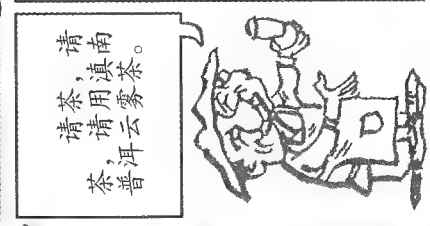 请茶，请
茶，请用滇南
普洱云雾茶。